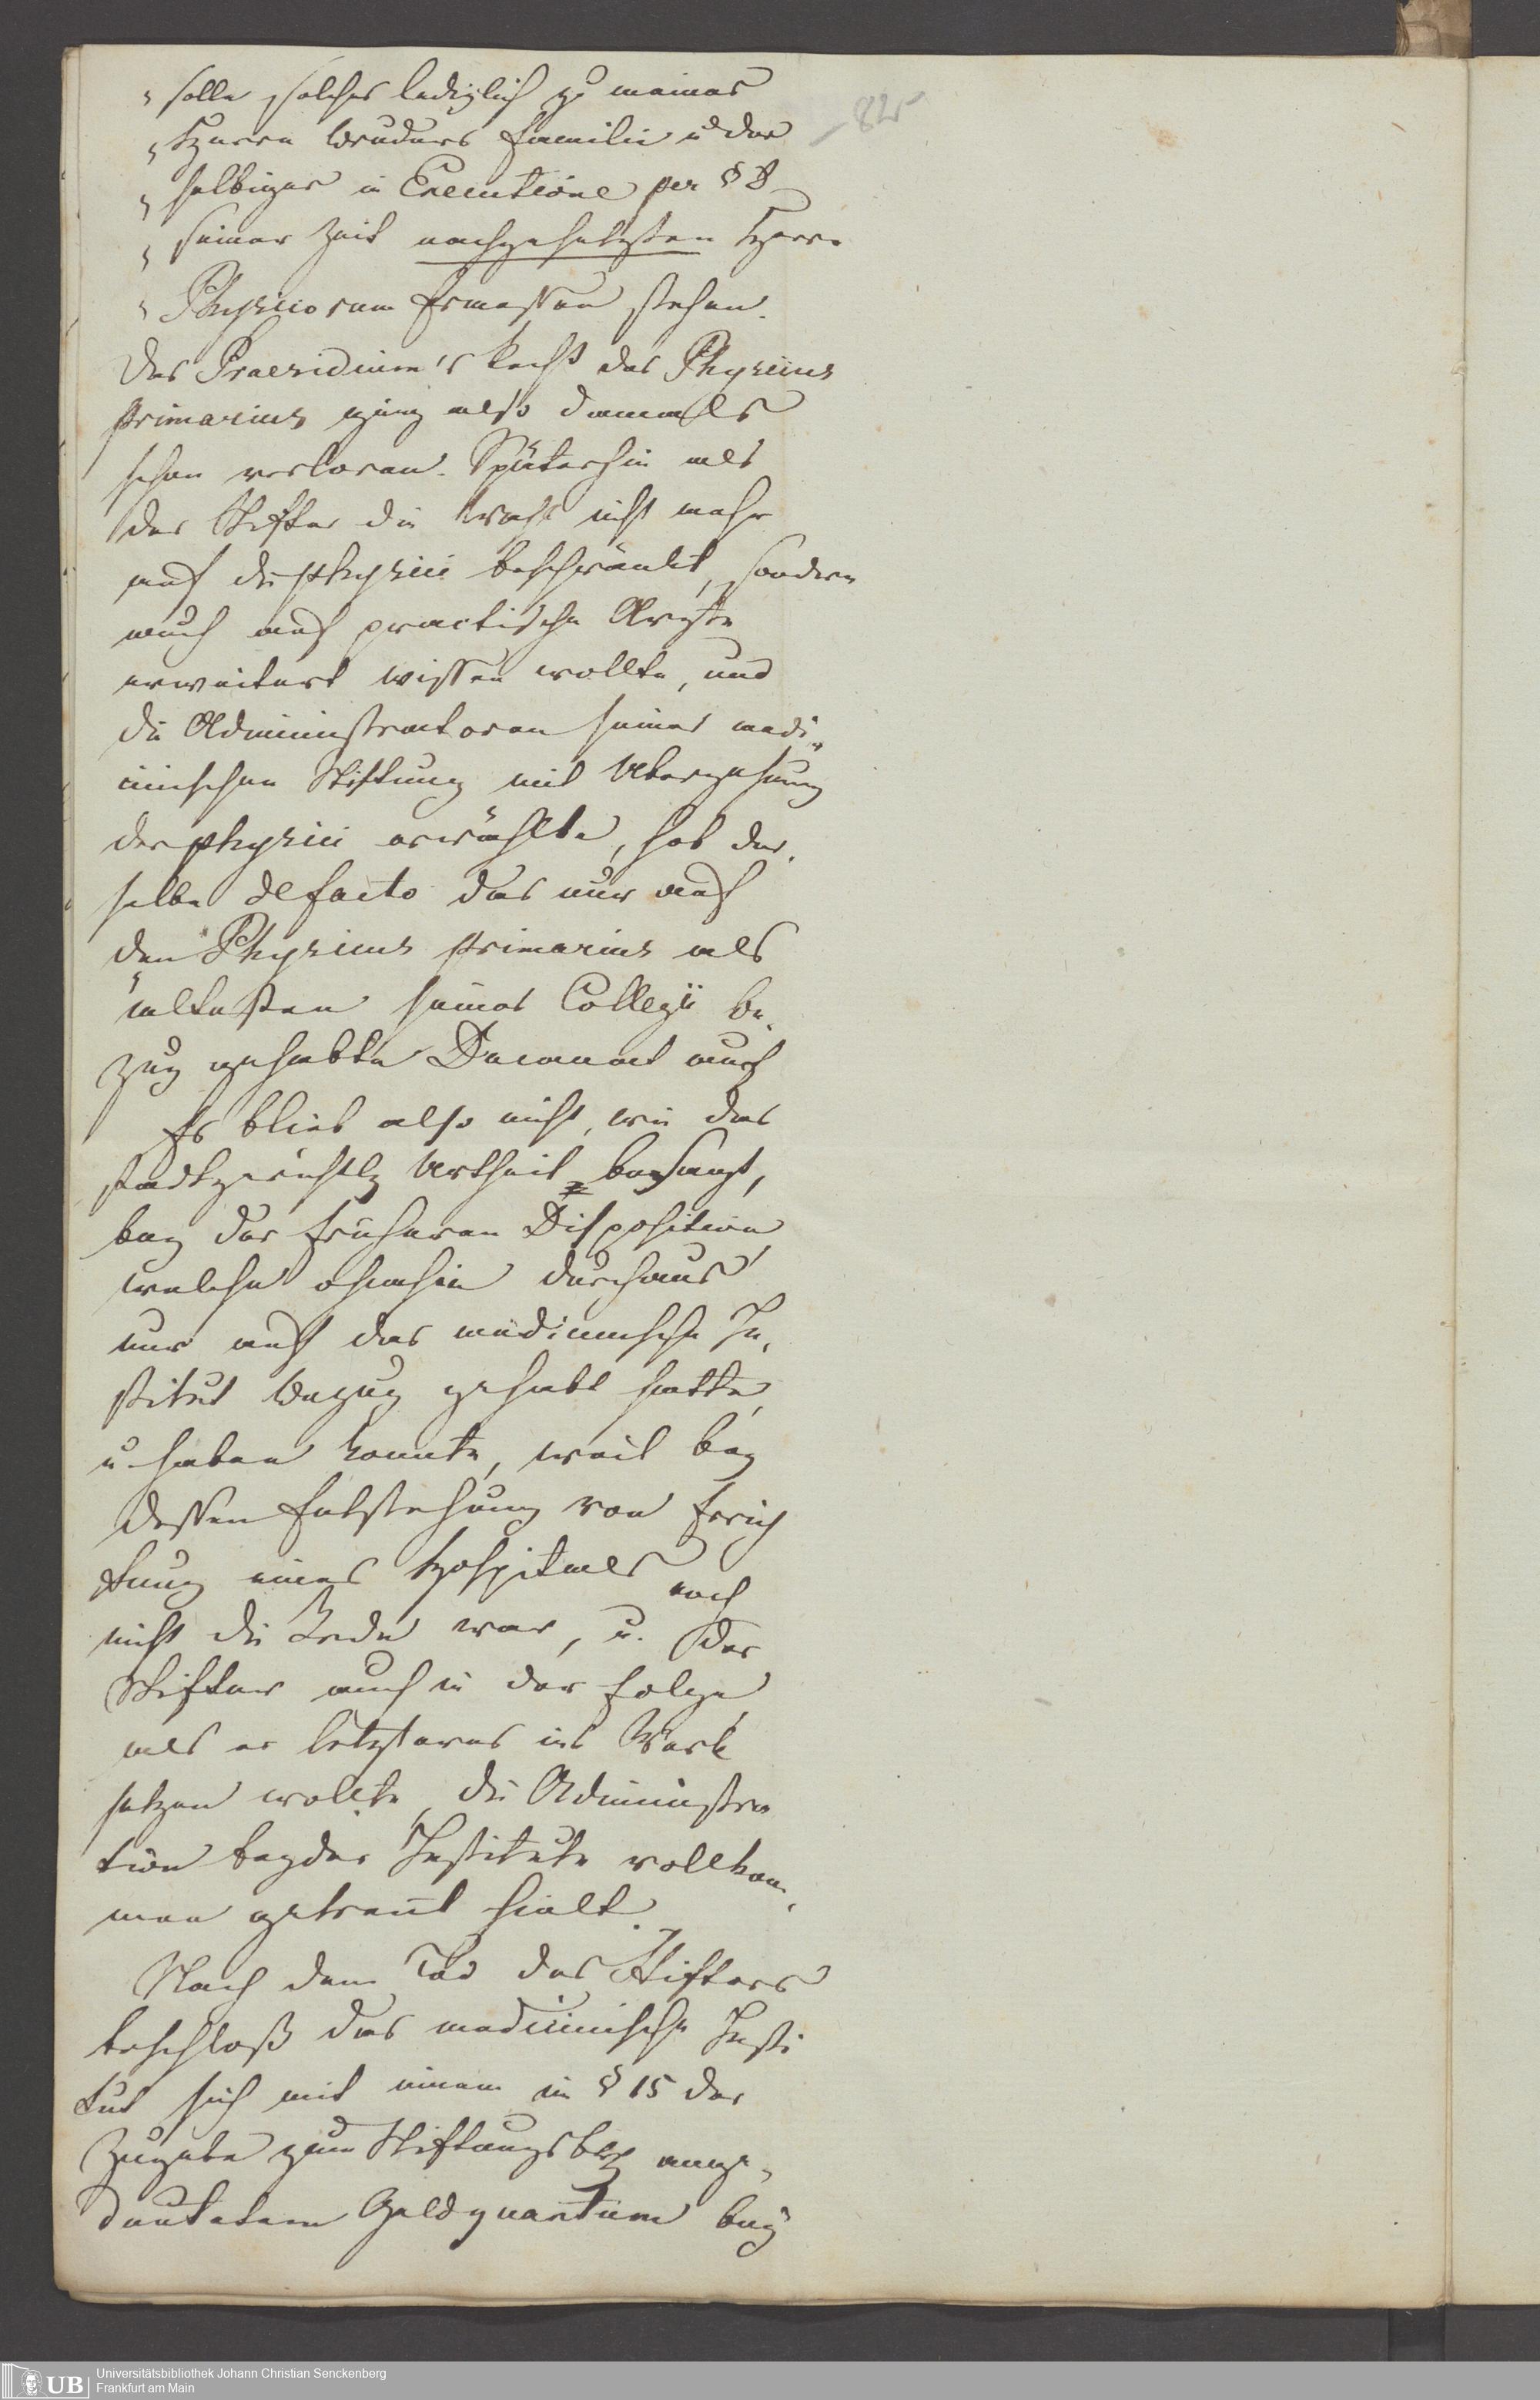 „ solle solches lediglich zu meines
„ Herrn Bruders Familie u der
„ selbiger in Executione per § 8
„ seiner Zeit nachgesetzten Herrn
„ Physicorum Ermessen stehen.
Des Praesidium's Recht des Physicus
primarius ging also damals
schon verloren. Späterhin als
der Stifter die Wahl nicht mehr
auf die physici beschränkt, sondern
auch auf practische Aerzte
erweitert wissen wollte, und
die Administratoren seines medi„
cinischen Stiftung mit Uebergehung
der physici erwählte, hob der„
selbe de facto das nur auf
den Physicus primarius als
ältesten seines Collegii be„
zug gehabte Decanat auf
Es blieb also nicht, wie das
stadtgerichtl Urtheil besagt,
bey der früheren Disposition,
welche ohnehin durchaus
nur auf das medicinische In„
stitut Bezug gehabt hatte,
u haben konnte, weil bey
dessen Entstehung von Errich
tung eines Hospitals noch
nicht die Rede war, u. der
Stifter auch in der Folge,
als er letzteres ins Werk
setzen wollte, die Administra
tion beyder Institute vollkom„
men getrennt hielt.
Nach dem Tod des Stifters
beschloß das medicinische Insti
tut sich mit einem in § 15 der
Zugabe zum Stiftungsbrf ange„
deutetem Geldquantum bey
82r
Universitätsbibliothek Johann Christian Senckenberg
Frankfurt am Main
UB